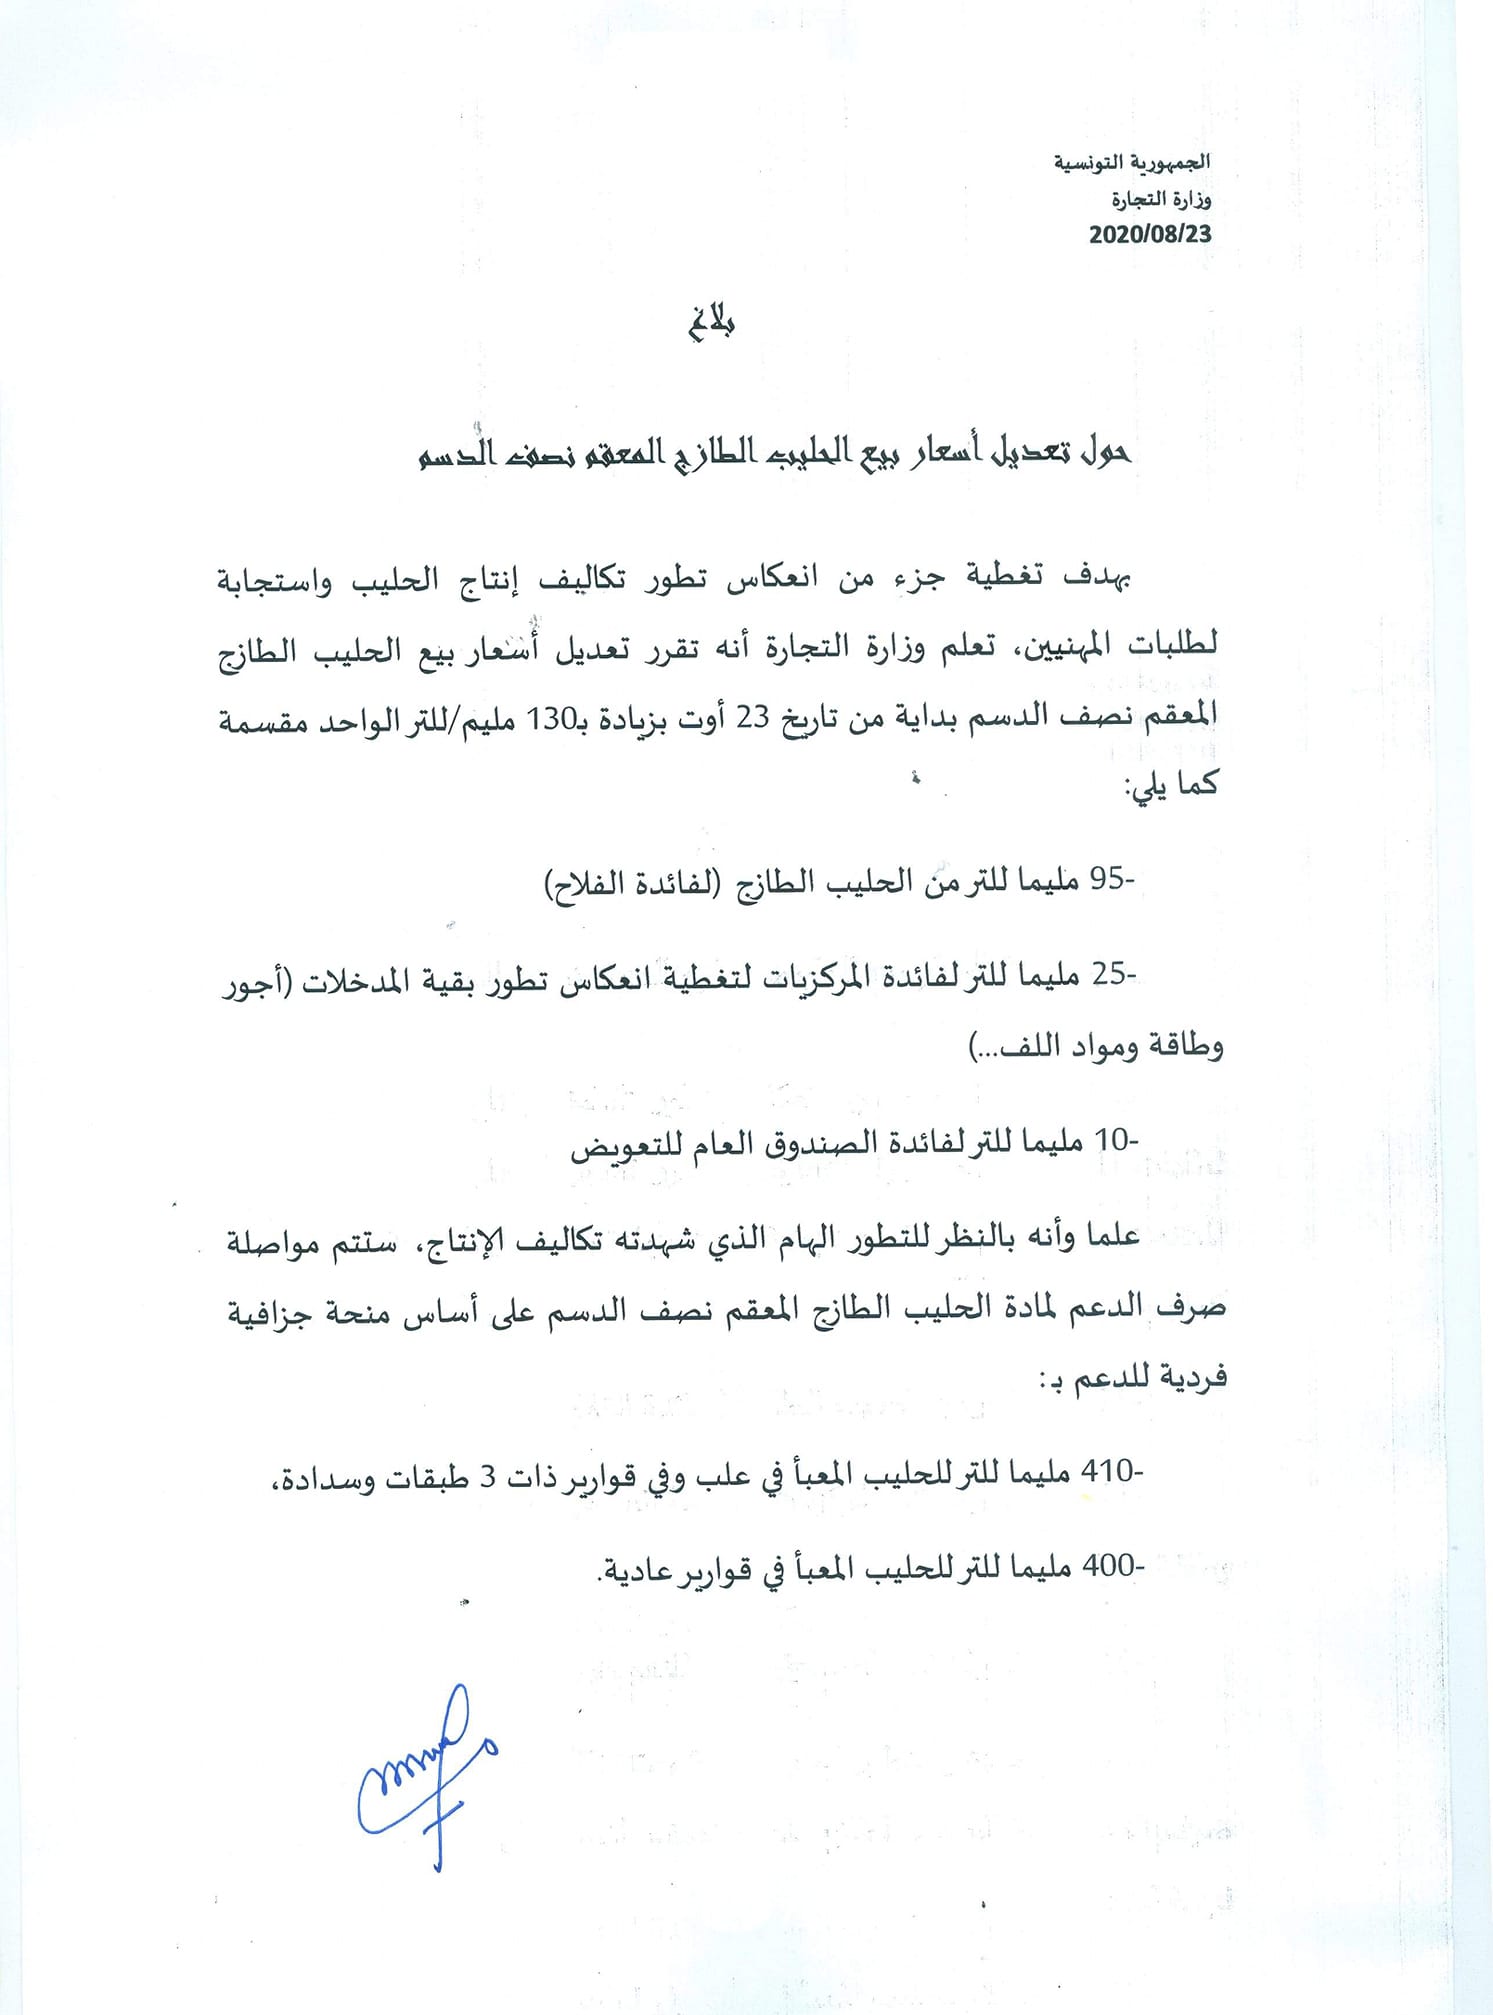 الجمهورية التونسية
وزارة التجارة
2020/08/23
بلاغ
حول تعديل أسعار بيع الحليب الطازج المعقم نصف الدسم
بهدف تغطية جزء من انعكاس تطور تكاليف إنتاج الحليب واستجابة
لطلبات المهنيين، تعلم وزارة التجارة أنه تقرر تعديل أسعار بيع الحليب الطازج
المعقم نصف الدسم بداية من تاريخ 23 أوت بزيادة بـ130 مليم/للتر الواحد مقسمة
كما يلي:
-95 مليما للتر من الحليب الطازج (لفائدة الفلاح)
-25 مليما للتر لفائدة المركزيات لتغطية انعكاس تطور بقية المدخلات (أجور
وطاقة ومواد اللف...)
-10 مليما للتر لفائدة الصندوق العام للتعويض
علما وأنه بالنظر للتطور الهام الذي شهدته تكاليف الإنتاج، ستتم مواصلة
صرف الدعم لمادة الحليب الطازج المعقم نصف الدسم على أساس منحة جزافية
فردية للدعم بـ:
-410 مليما للتر للحليب المعبأ في علب وفي قوارير ذات 3 طبقات وسدادة،
-400 مليما للتر للحليب المعبأ في قوارير عادية.